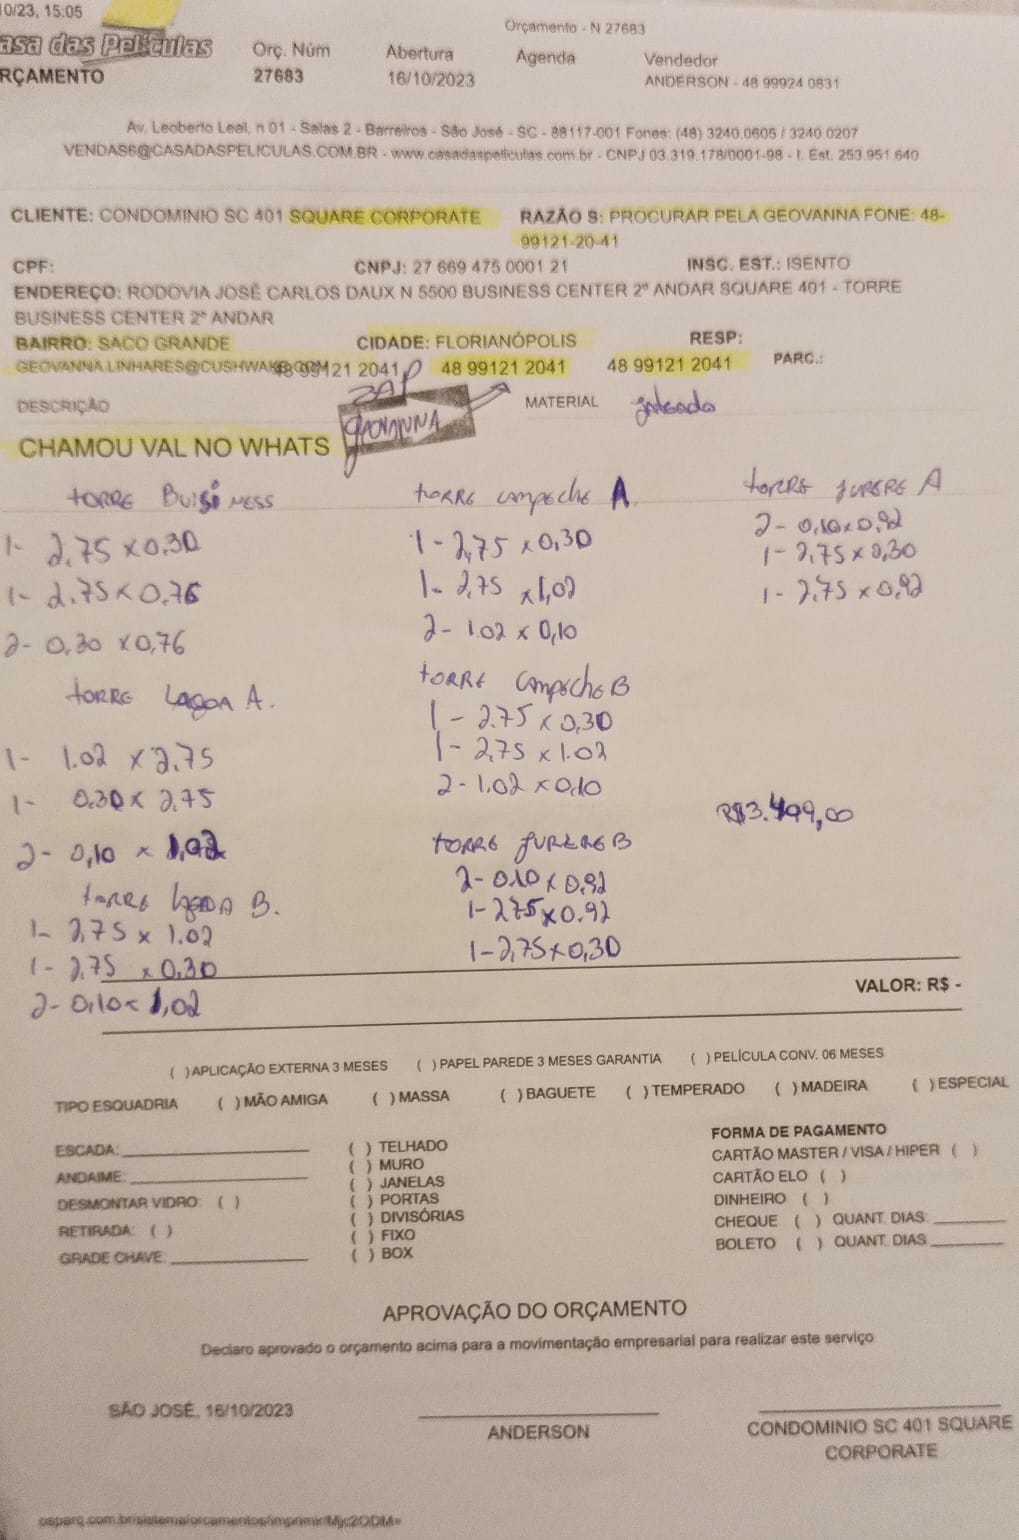 10/23, 15:05
Orçamento - N 27683
asa das Películas
RÇAMENTO
Orç. Núm
27683
Abertura
16/10/2023
Agenda
Vendedor
ANDERSON - 48 99924 0831
Av. Leoberto Leal, n 01 - Salas 2 - Barreiros - São José - SC - 88117-001 Fones: (48) 3240.0605 / 3240.0207
VENDAS6@CASADASPELICULAS.COM.BR - www.casadaspeliculas.com.br - CNPJ 03.319.178/0001-98 - I. Est. 253.951.640
CLIENTE: CONDOMINIO SC 401 SQUARE CORPORATE
RAZÃO S: PROCURAR PELA GEOVANNA FONE: 48-
99121-20-41
CPF:
CNPJ: 27 669 475 0001 21
INSC. EST.: ISENTO
ENDEREÇO: RODOVIA JOSÉ CARLOS DAUX N 5500 BUSINESS CENTER 2º ANDAR SQUARE 401 - TORRE
BUSINESS CENTER 2º ANDAR
BAIRRO: SACO GRANDE
CIDADE: FLORIANÓPOLIS
RESP:
GEOVANNA.LINHARES@CUSHWAKE.COM
48 99121 2041
48 99121 2041
48 99121 2041
PARC.:
ZAP
GEOVANNA
DESCRIÇÃO
MATERIAL
jateado
CHAMOU VAL NO WHATS
TORRE BUISINESS
1- 2,75 x 0,30
1- 2,75 x 0,76
2- 0,30 x 0,76
TORRE LAGOA A.
1- 1.02 x 2,75
1- 0.30 x 2,75
2- 0,10 x 1,02
TORRE LAGOA B.
1- 2,75 x 1.02
1- 2,75 x 0,30
2- 0,10 x 1,02
TORRE CAMPECHE A.
1- 2,75 x 0,30
1- 2,75 x 1,02
2- 1.02 x 0,10
TORRE CAMPECHE B
1- 2.75 x 0,30
1- 2,75 x 1.02
2- 1.02 x 0,10
TORRE JURERE B
2- 0.10 x 0,92
1- 275 x 0.92
1- 2,75 x 0,30
TORRE JURERE A
2- 0,10 x 0,92
1- 2,75 x 0,30
1- 2,75 x 0,92
R$3.499,00
VALOR: R$ -
( ) APLICAÇÃO EXTERNA 3 MESES ( ) PAPEL PAREDE 3 MESES GARANTIA ( ) PELÍCULA CONV. 06 MESES
TIPO ESQUADRIA ( ) MÃO AMIGA ( ) MASSA ( ) BAGUETE ( ) TEMPERADO ( ) MADEIRA ( ) ESPECIAL
ESCADA:
ANDAIME:
DESMONTAR VIDRO: ( )
RETIRADA: ( )
GRADE CHAVE:
( ) TELHADO
( ) MURO
( ) JANELAS
( ) PORTAS
( ) DIVISÓRIAS
( ) FIXO
( ) BOX
FORMA DE PAGAMENTO
CARTÃO MASTER / VISA / HIPER ( )
CARTÃO ELO ( )
DINHEIRO ( )
CHEQUE ( ) QUANT. DIAS:
BOLETO ( ) QUANT. DIAS
APROVAÇÃO DO ORÇAMENTO
Declaro aprovado o orçamento acima para a movimentação empresarial para realizar este serviço
SÃO JOSÉ, 16/10/2023
ANDERSON
CONDOMINIO SC 401 SQUARE
CORPORATE
osparq.com.br/sistema/orcamentos/imprimir/Mjc2ODM=